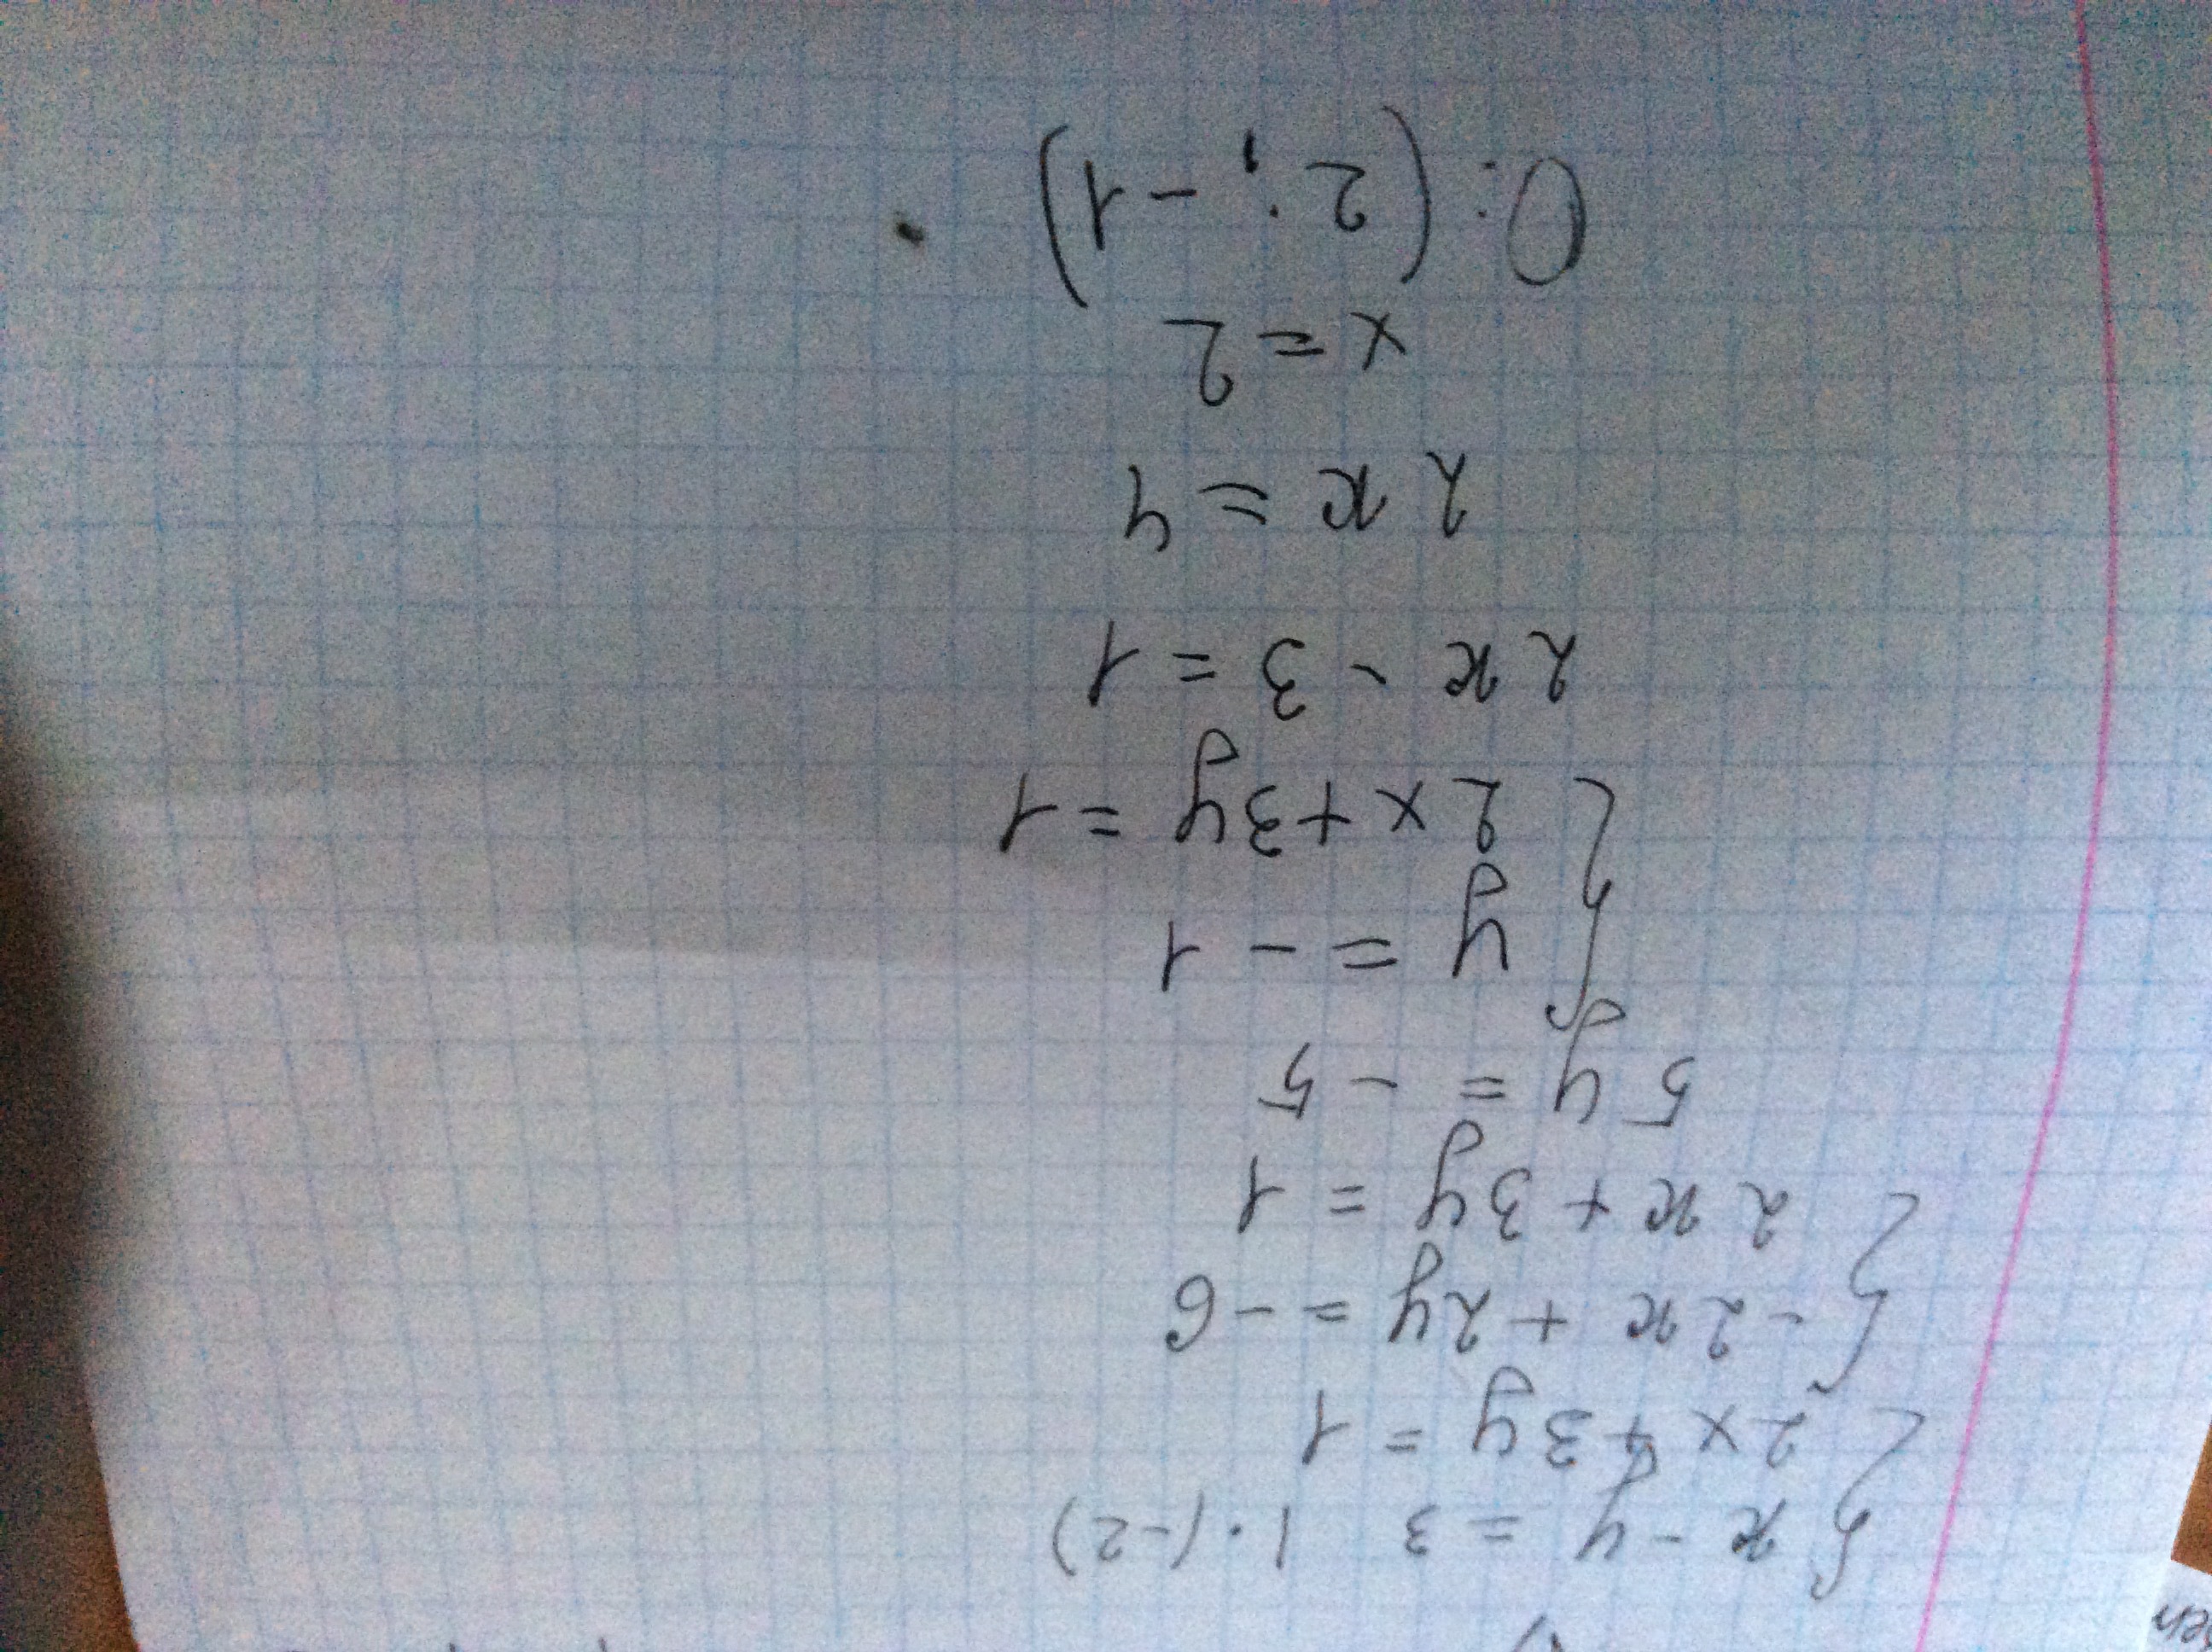 { x - y = 3 | · (-2)
2x + 3y = 1
{ -2x + 2y = -6
2x + 3y = 1
5y = -5
{ y = -1
2x + 3y = 1
2x - 3 = 1
2x = 4
x = 2
О: (2; -1)